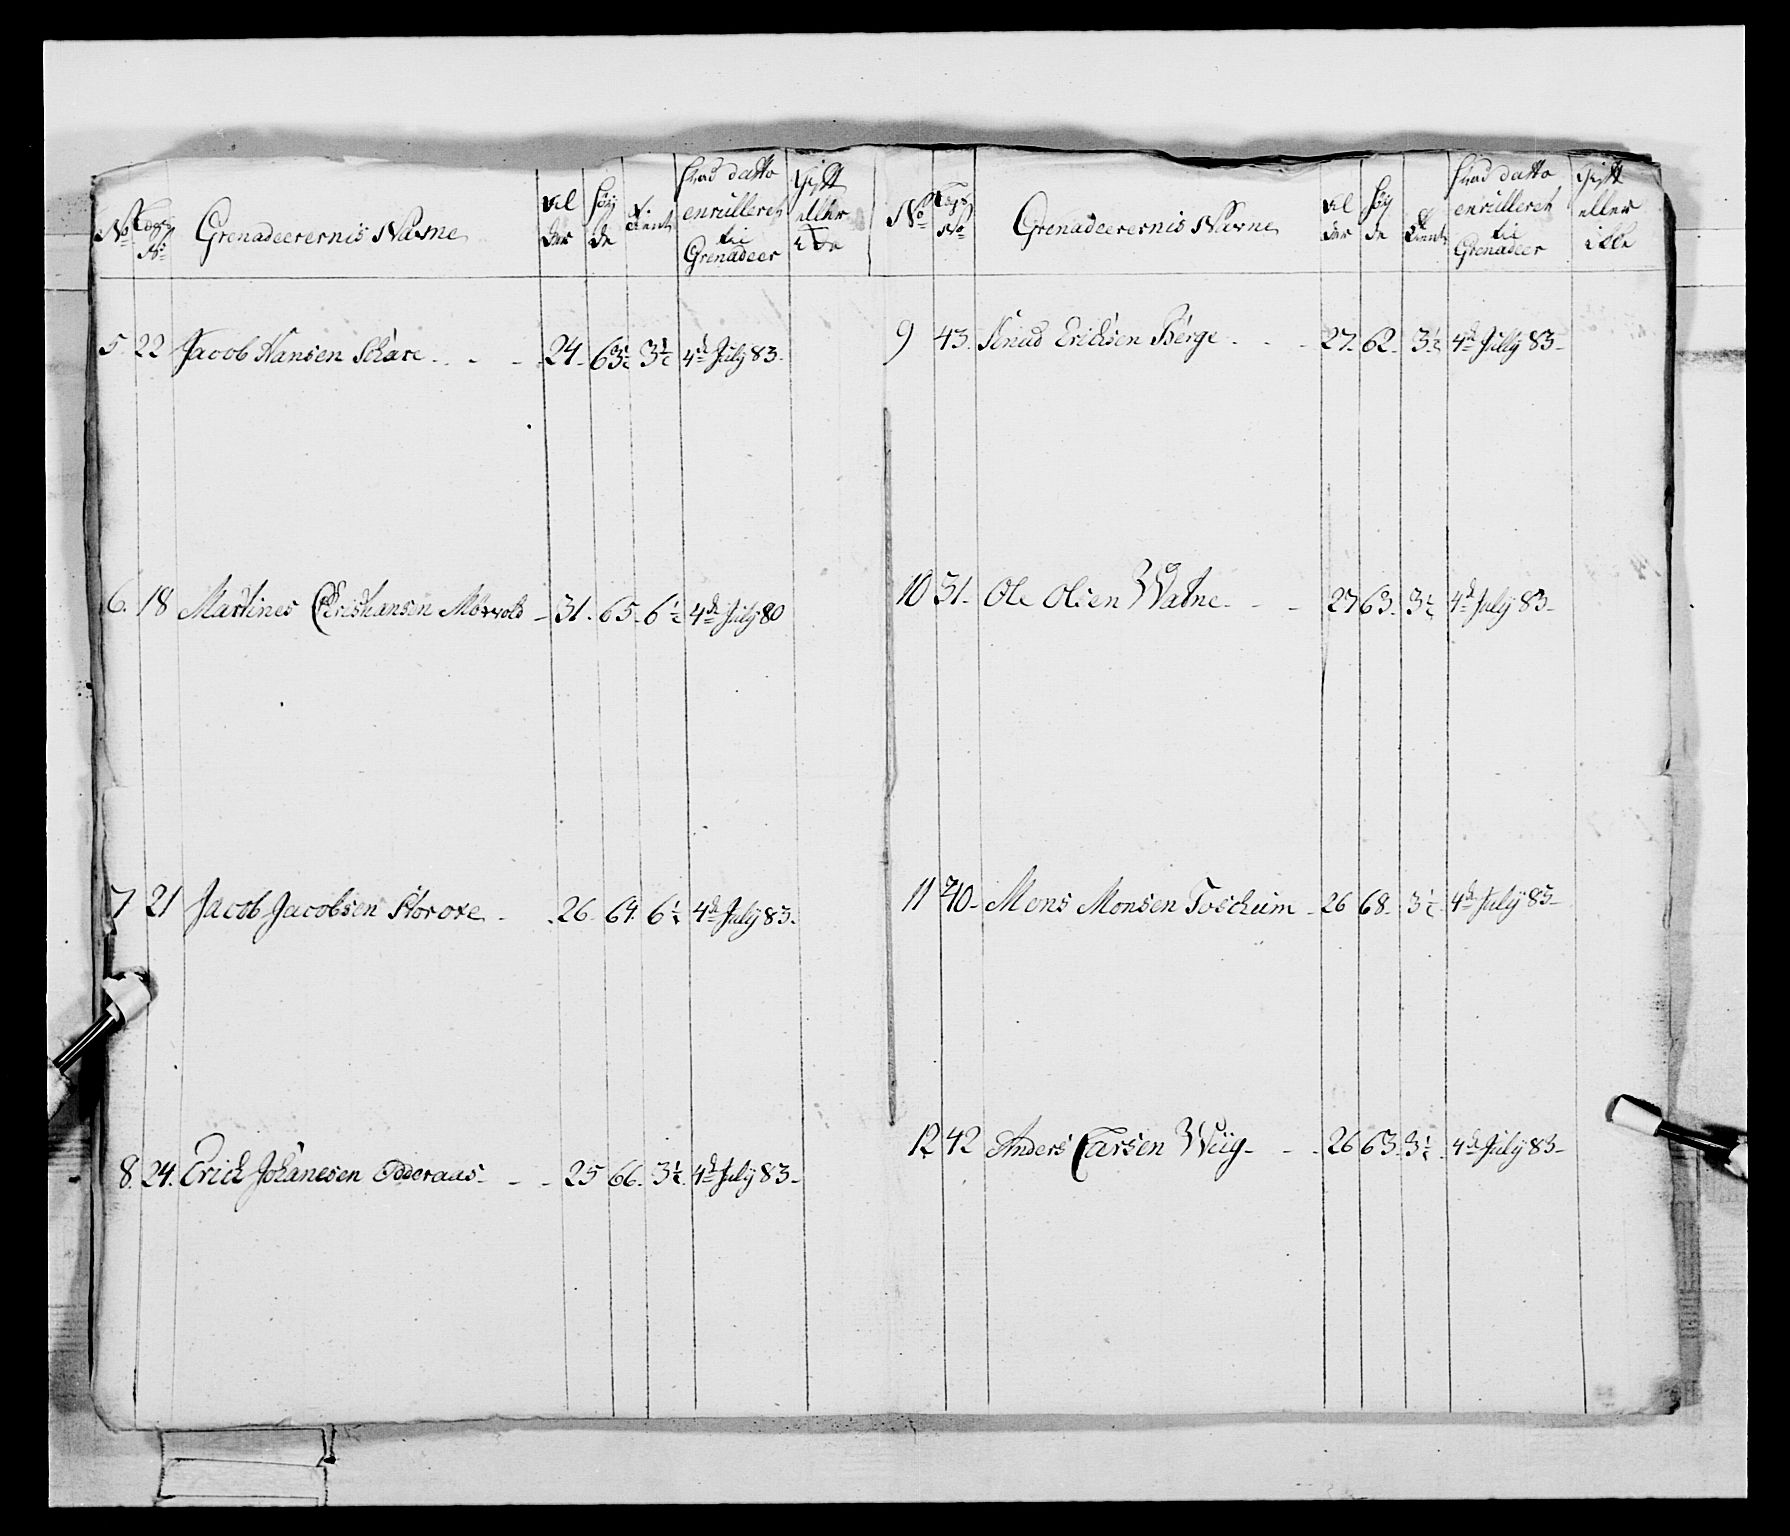 No Grenadeerernis Navne Al der Høy de Tient hvad datto enrulleret til Grenadeer Gift eller ikke
5. 22 Jacob Hansen Schare - - - 24 - 63½ 3½ 4de July 83 -
6. 18 Martines Christiansen Mørvold - 31. 65. 6½ 4de July 80
7 21 Jacob Jacobsen - 26. 64. 6½ 4de July 83.
8. 24. Erick Johanesen Odderaas - - - 25 66. 3½ 4de July 83 -
No No Grenadeerernis Navne Al der Høy de Tient hvad datto enrulleret til Grenadeer Gift eller ikke
9 43. Knud Ericksen Berge - - - 27. 62. 3½ 4de July 83 -
10 31. Ole Olsen Watne - - - 27 63. 3½ 4de July 83 -
11 40. Mons Monsen Toscheim - 26 68. 3½ 4de July 83 -
12 42 Anders Larsen Wiig - - - 26 63. 3½ 4de July 83 -